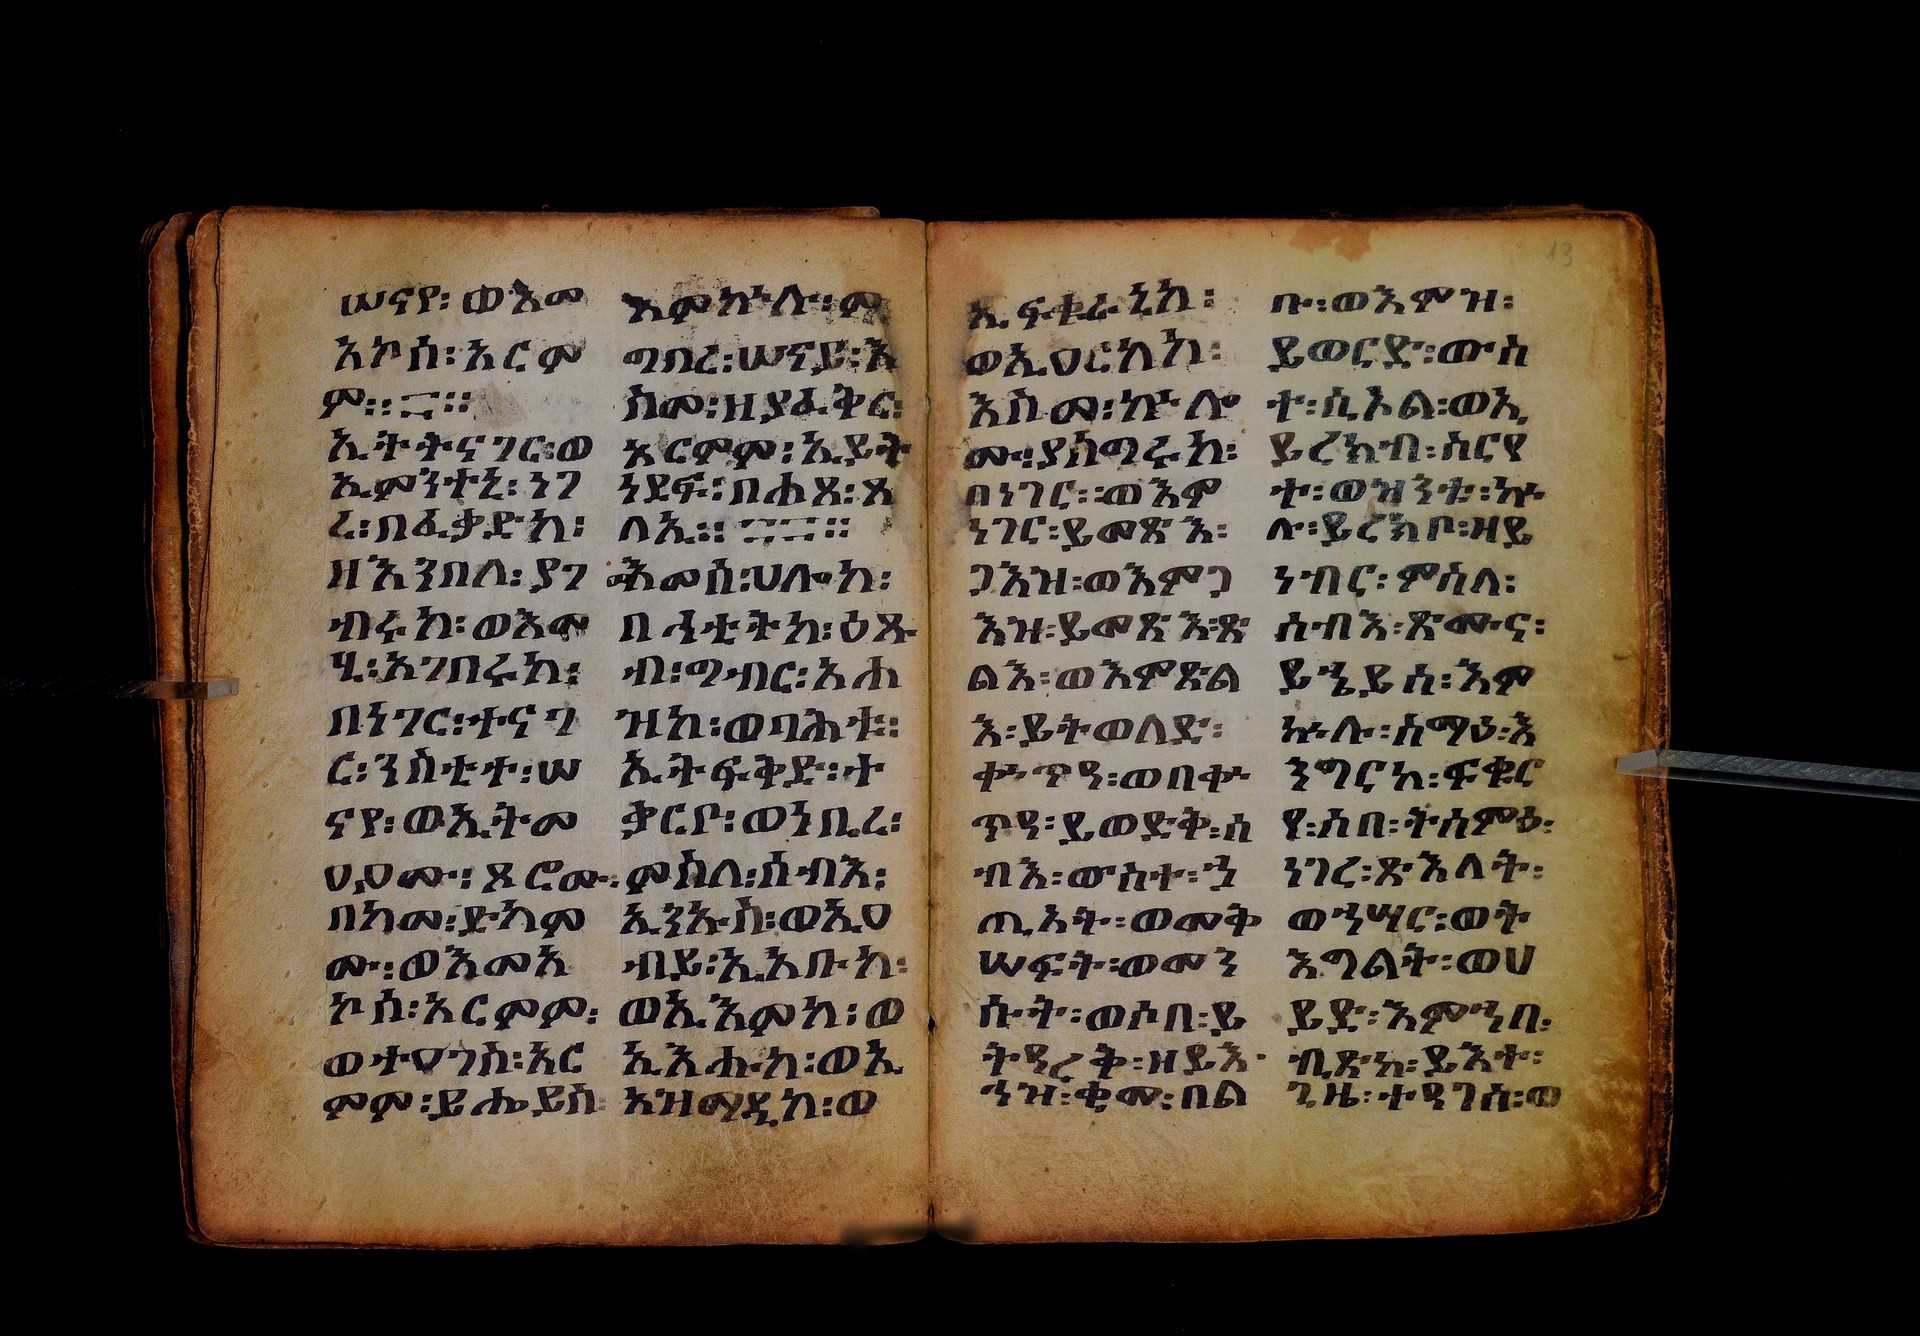 ሠናየ፡ ወእመ
አኮሰ፡ አርም
ም። ። 
ኢትትናገር፡ ወ
ኢምንተኒ፡ ነገ
ረ፡ በፈቃድከ፡
ዘእንበለ፡ ያገ
ብሩከ፡ ወእመ
ሂ፡ አገበሩከ፡
በነገር፡ ተናገ
ር፡ ንስቲተ፡ ሠ
ናየ፡ ወኢትመ
በከመ፡ ድካም
ሙ፡ ወእመአ
ኮሰ፡ አርምም፡
ወተዐገስ፡ አር
ምም፡ ይሔይስ፡
እምኵሉ፡ ም
ግበረ፡ ሠናይ፡ እ
ስመ፡ ዘያፈቅር፡
አርምሞ፡ ኢይት
ነደፍ፡ በሐጸ፡ ጸ
ላኢ። ።
እመሰ፡ ሀሎከ፡
በሓቲትከ፡ ዕጹ
ብ፡ ግብር፡ አሐ
ዝከ፡ ወባሕቱ፡
ኢትፍቅድ፡ ት
ቃርቦ፡ ወነቢረ፡
ምስለ፡ ሰብእ፡
ኢንኡስ፡ ወኢዐ
ብይ፡ ኢአቡከ፡
ወኢእምከ፡ ወ
ኢእሑከ፡ ወኢ
አዝማዲከ፡ ወ
ኢፍቁራኒከ፡
ወኢዐርከከ፡
እስመ፡ ኵሎ
ሙ፡ ያስግሩከ፡
በነገር፡ ወእም
ነገር፡ ይመጽእ፡
ጋእዝ፡ ወእምጋ
እዝ፡ ይመጽእ፡ ጽ
ልእ፡ ወእምጽል
እ፡ ይትወለድ፡
ቍጥዓ፡ ወበቍ
ጥዓ፡ ይወድቅ፡ ሰ
ብእ፡ ውስተ፡ ኀ
ጢአት፡ ወመቅ
ሠፍት፡ ወመን
ሱት፡ ወሶበ፡ ይ
ትዓረቅ፡ ዘይእ
ኅዝ፡ ቂመ፡ በል
ቡ፡ ወእምዝ፡
ይወርድ፡ ውስ
ተ፡ ሲኦል፡ ወኢ
ይረክብ፡ ስርየ
ተ፡ ወዝንቱ፡ ኵ
ሉ፡ ይረክቦ፡ ዘይ
ነብር፡ ምስለ፡
ሰብእ፡ ጽሙና፡
ይኄይስ፡ እም
ኵሉ፡ ስማዕ፡ እ
ንግርከ፡ ፍቁር
የ፡ ሶበ፡ ትሰምዕ፡
ነገረ፡ ጽእለት፡
ወኀሣር፡ ወት
እግልት፡ ወሀ
ይድ፡ እምኀበ፡
ቢጽከ፡ ይእተ፡
ጊዜ፡ ተዓገስ፡ ወ
13